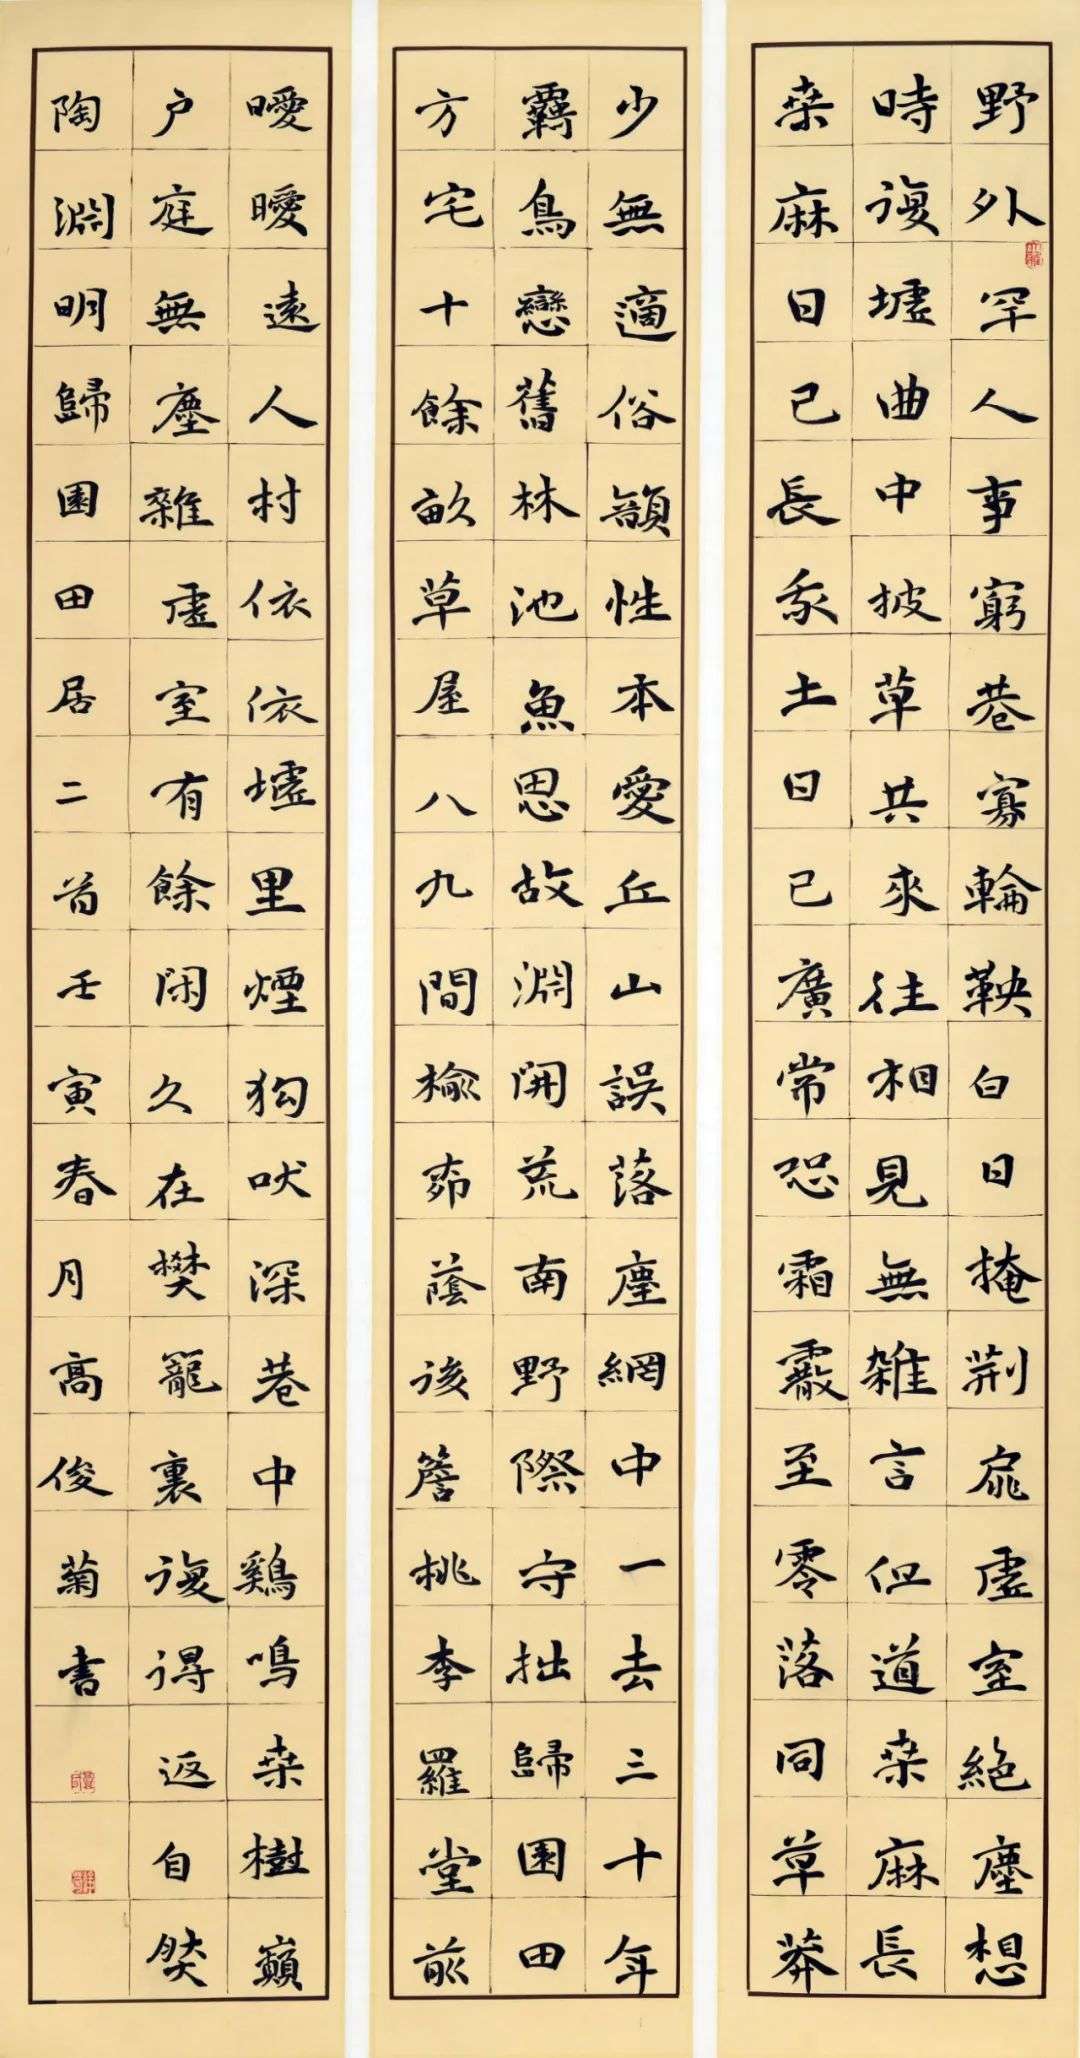 野外罕人事窮巷寡輪鞅白日掩荆扉虛室絕塵想
時復墟曲中披草共來往相見無雜言但道桑麻長
桑麻日已長我土日已廣常恐霜霰至零落同草莽
少無適俗韻性本愛丘山誤落塵網中一去三十年
羇鳥戀舊林池魚思故淵開荒南野際守拙歸園田
方宅十餘畝草屋八九間榆柳蔭後簷桃李羅堂前
曖曖遠人村依依墟里煙狗吠深巷中鷄鳴桑樹巔
户庭無塵雜虛室有餘閑久在樊籠裏復得返自然
陶淵明歸園田居二首壬寅春月高俊菊書